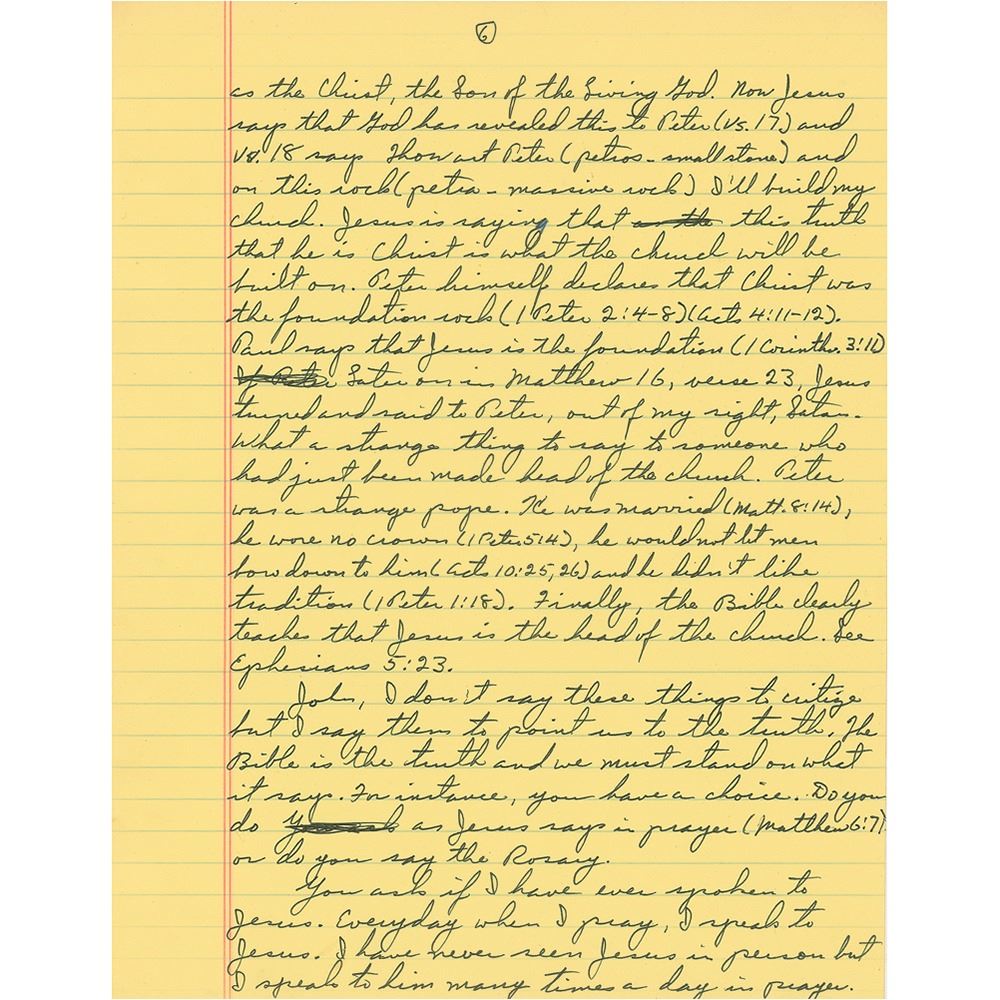 6
as the Christ, the Son of the Living God. Now Jesus
says that God has revealed this to Peter (Vs. 17) and
Vs. 18 says Thou art Peter (petros - small stone) and
on this rock (petra - massive rock) I'll build my
church. Jesus is saying that this truth
that he is Christ is what the church will be
built on. Peter himself declares that Christ was
the foundation rock (1 Peter 2:4-8) (Acts 4:11-12).
Paul says that Jesus is the foundation (1 Corinth. 3:11)
Later on in Matthew 16, verse 23, Jesus
turned and said to Peter, out of my sight, Satan.
What a strange thing to say to someone who
had just been made head of the church. Peter
was a strange pope. He was married (Matt. 8:14),
he wore no crown (1 Peter 5:4), he would not let men
bow down to him (Acts 10:25,26) and he didn't like
tradition (1 Peter 1:18). Finally, the Bible clearly
teaches that Jesus is the head of the church. See
Ephesians 5:23.
John, I don't say these things to critize
but I say them to point us to the truth. The
Bible is the truth and we must stand on what
it says. For instance, you have a choice. Do you
do as Jesus says in prayer (Matthew 6:7)
or do you say the Rosary.
You ask if I have ever spoken to
Jesus. Everyday when I pray, I speak to
Jesus. I have never seen Jesus in person but
I speak to him many times a day in prayer.